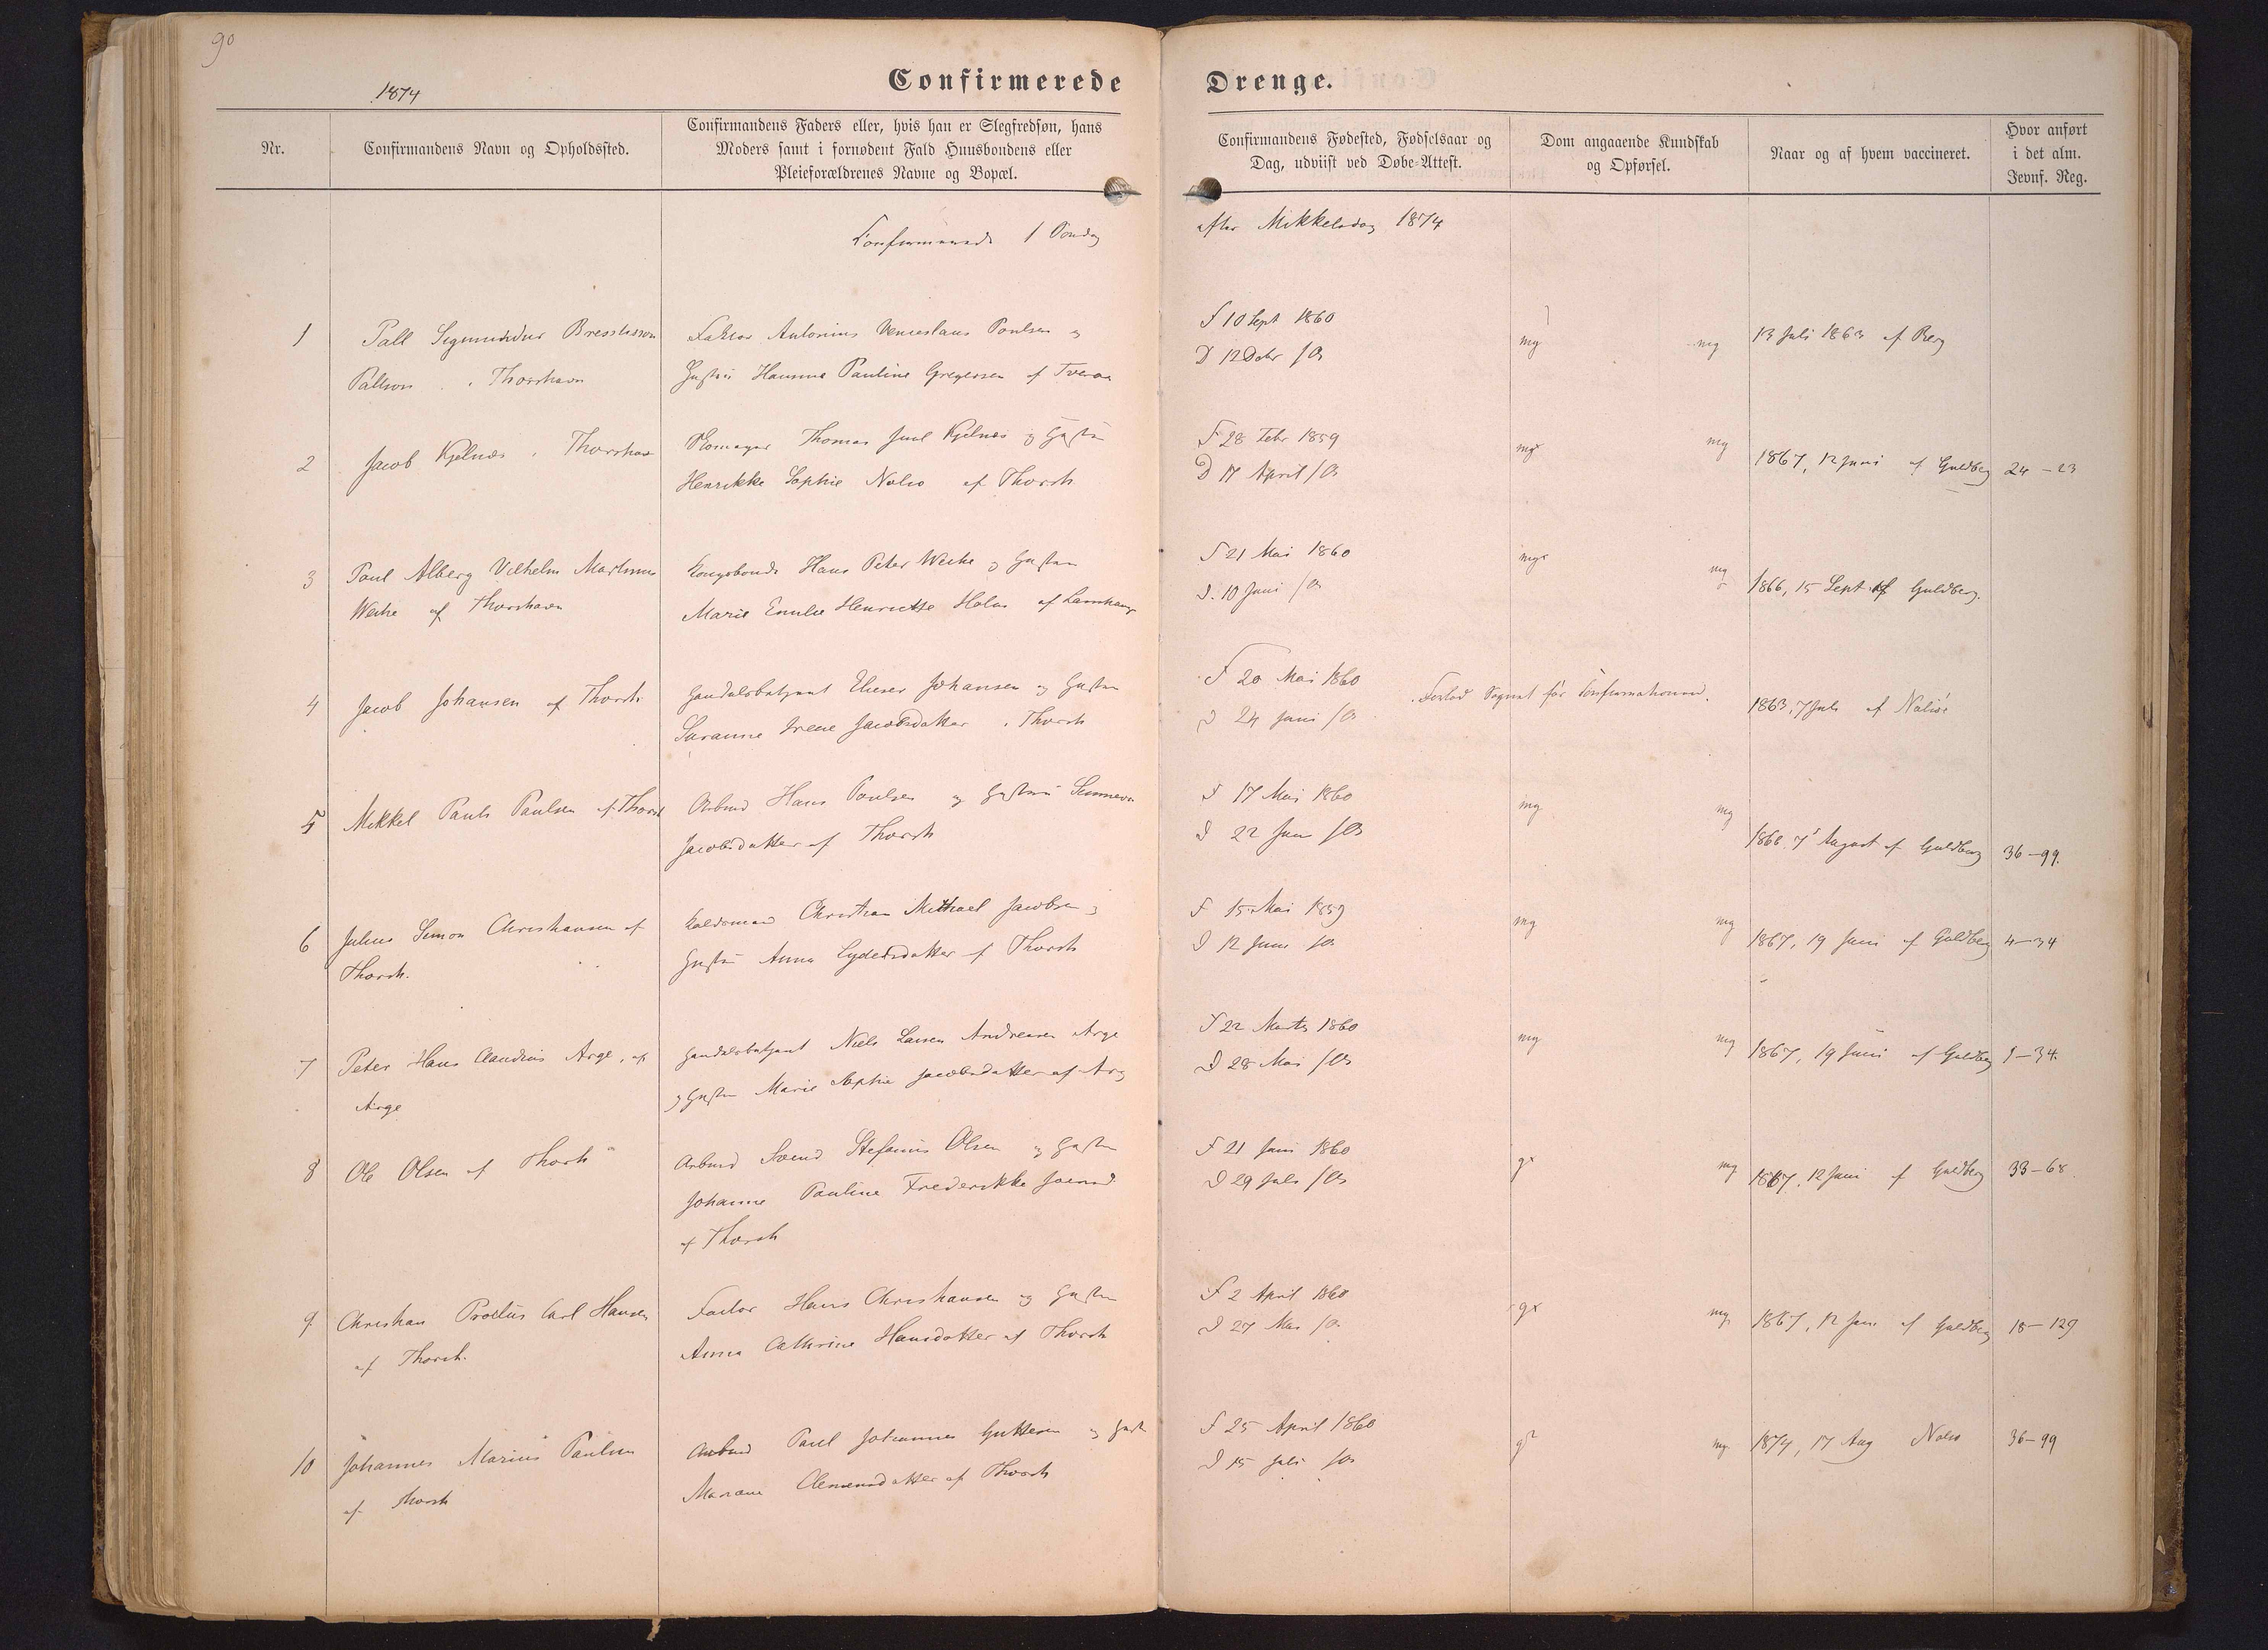 90
1874
Confirmerede Drenge.
Nr.
Confirmandens Navn og Opholdssted.
Confirmandens Faders eller, hvis han er Slegfredsøn, hans
Moders samt i fornødent Fald Huusbondens eller
Pleieforældrenes Navne og Bopæl.
Confirmandens Fødested, Fødselsaar og
Dag, udviist ved Døbe-Attest.
Dom angaaende Kundskab
og Opførsel.
Naar og af hvem vaccineret.
Hvor anført
i det alm.
Jevnf. Reg.
1 Søndag
efter Mikkelsdag 1874
1
Pall Sigmundur
Pallson i Thorshavn
Faktor Antonius Venceslaus Poulsen og
Hustru Hanna Pauline Gregersen af Tveraa
F 10 Sept 1860
mg
mg
13 Juli 1863 af Berg
2
Jacob Kjelnæs i Thorshavn
Thomas Juul Kjelnes og Hustru
Henrikke Sophie Nolsø af Thorsh
F 28 Febr 1859
D 17 April s.A.
mg
1867, 12 Juni af Guldberg
24-23
3
Poul Alberg Vilhelm Martinus
Weihe af Thorshavn
Kongsbonde Hans Peter Weihe og Hustru
Marie Emilie Henriette Holm af
F 21 Mai 1860
D. 10 Juni s.A.
mg
1866, 15 Sept af Guldberg.
4
Jacob Johansen af Thorsh
Handelsbetjent Elieser Johansen og Hustru
Susanne Irene Jacobsdatter i Thorsh
F 20 Mai 1860
D 24 Juni s.A.
Forlod Sognet før Confirmationen.
1863, 7 Juli af Nølsøe
5
Mikkel Pauli Paulsen af Thorsh
Arbmd Hans Poulsen og Hustru Sunneva
Jacobsdatter af Thorsh
F 17 Mai 1860
D 22 Juni s.A.
mg
mg
1866. 7 August af Guldberg
36-99.
6
Julius Simon Christiansen af
Thorsh.
Christian Michael Jacobsen og
Hustru Anna Lydersdatter af Thorsh
F 15 Mai 1859
D 12 Juni s.A.
mg
mg
1867, 19 Juni af Guldberg
4-34
7
Peter Hans Claudius Arge, af
Arge
Handelsbetjent Niels Larsen Andreasen Arge
og Hustru Marie Sophie Jacobsdatter af Arge
F 22 Marts 1860
D 28 Mai s.A.
mg
mg
1867, 19 Juni af Guldberg
8
Ole Olsen af Thorsh
Arbmd Svend Stefanus Olsen og Hustru
Johanne Pauline Frederikke
af Thorsh
F 21 Juni 1860
D 29 Juli s.A.
mg
1867, 12 Juni af Guldberg
33-68
9
Christian Carl Hansen
af Thorsh.
Factor Hans Christiansen og Hustru
Anna Cathrine Hansdatter af Thorsh
F 2 April 1860
D 27 Mai s.A.
mg
1867, 12 Juni af Guldberg
18-129
10
Johannes Marius Paulsen
af Thorsh
Arbmd Paul Johannes Guttesen og Hustru
Clemensdatter af Thorsh
F 25 April 1860
D 15 Juli s.A.
mg
1874, 17 Aug Nolsø
36-99